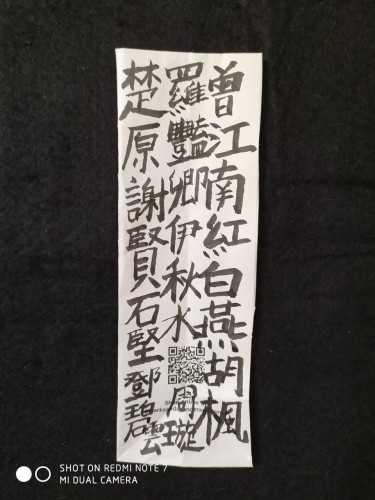 曾江南紅白燕胡楓
羅豔卿伊秋水周璇
楚原謝賢石堅鄧碧雲
SHOT ON REDMI NOTE 7
MI DUAL CAMERA